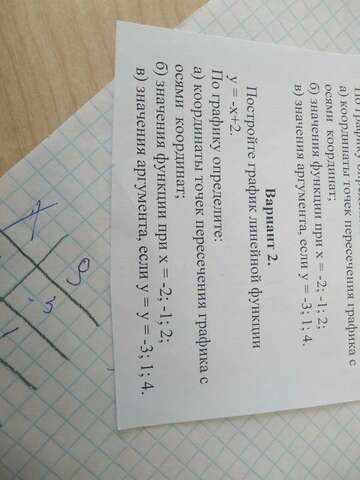 а) координаты точек пересечения графика с
осями координат;
б) значения функции при x = -2; -1; 2;
в) значения аргумента, если y = -3; 1; 4.
Вариант 2.
Постройте график линейной функции
y = -x+2.
По графику определите:
а) координаты точек пересечения графика с
осями координат;
б) значения функции при x = -2; -1; 2;
в) значения аргумента, если y = y = -3; 1; 4.